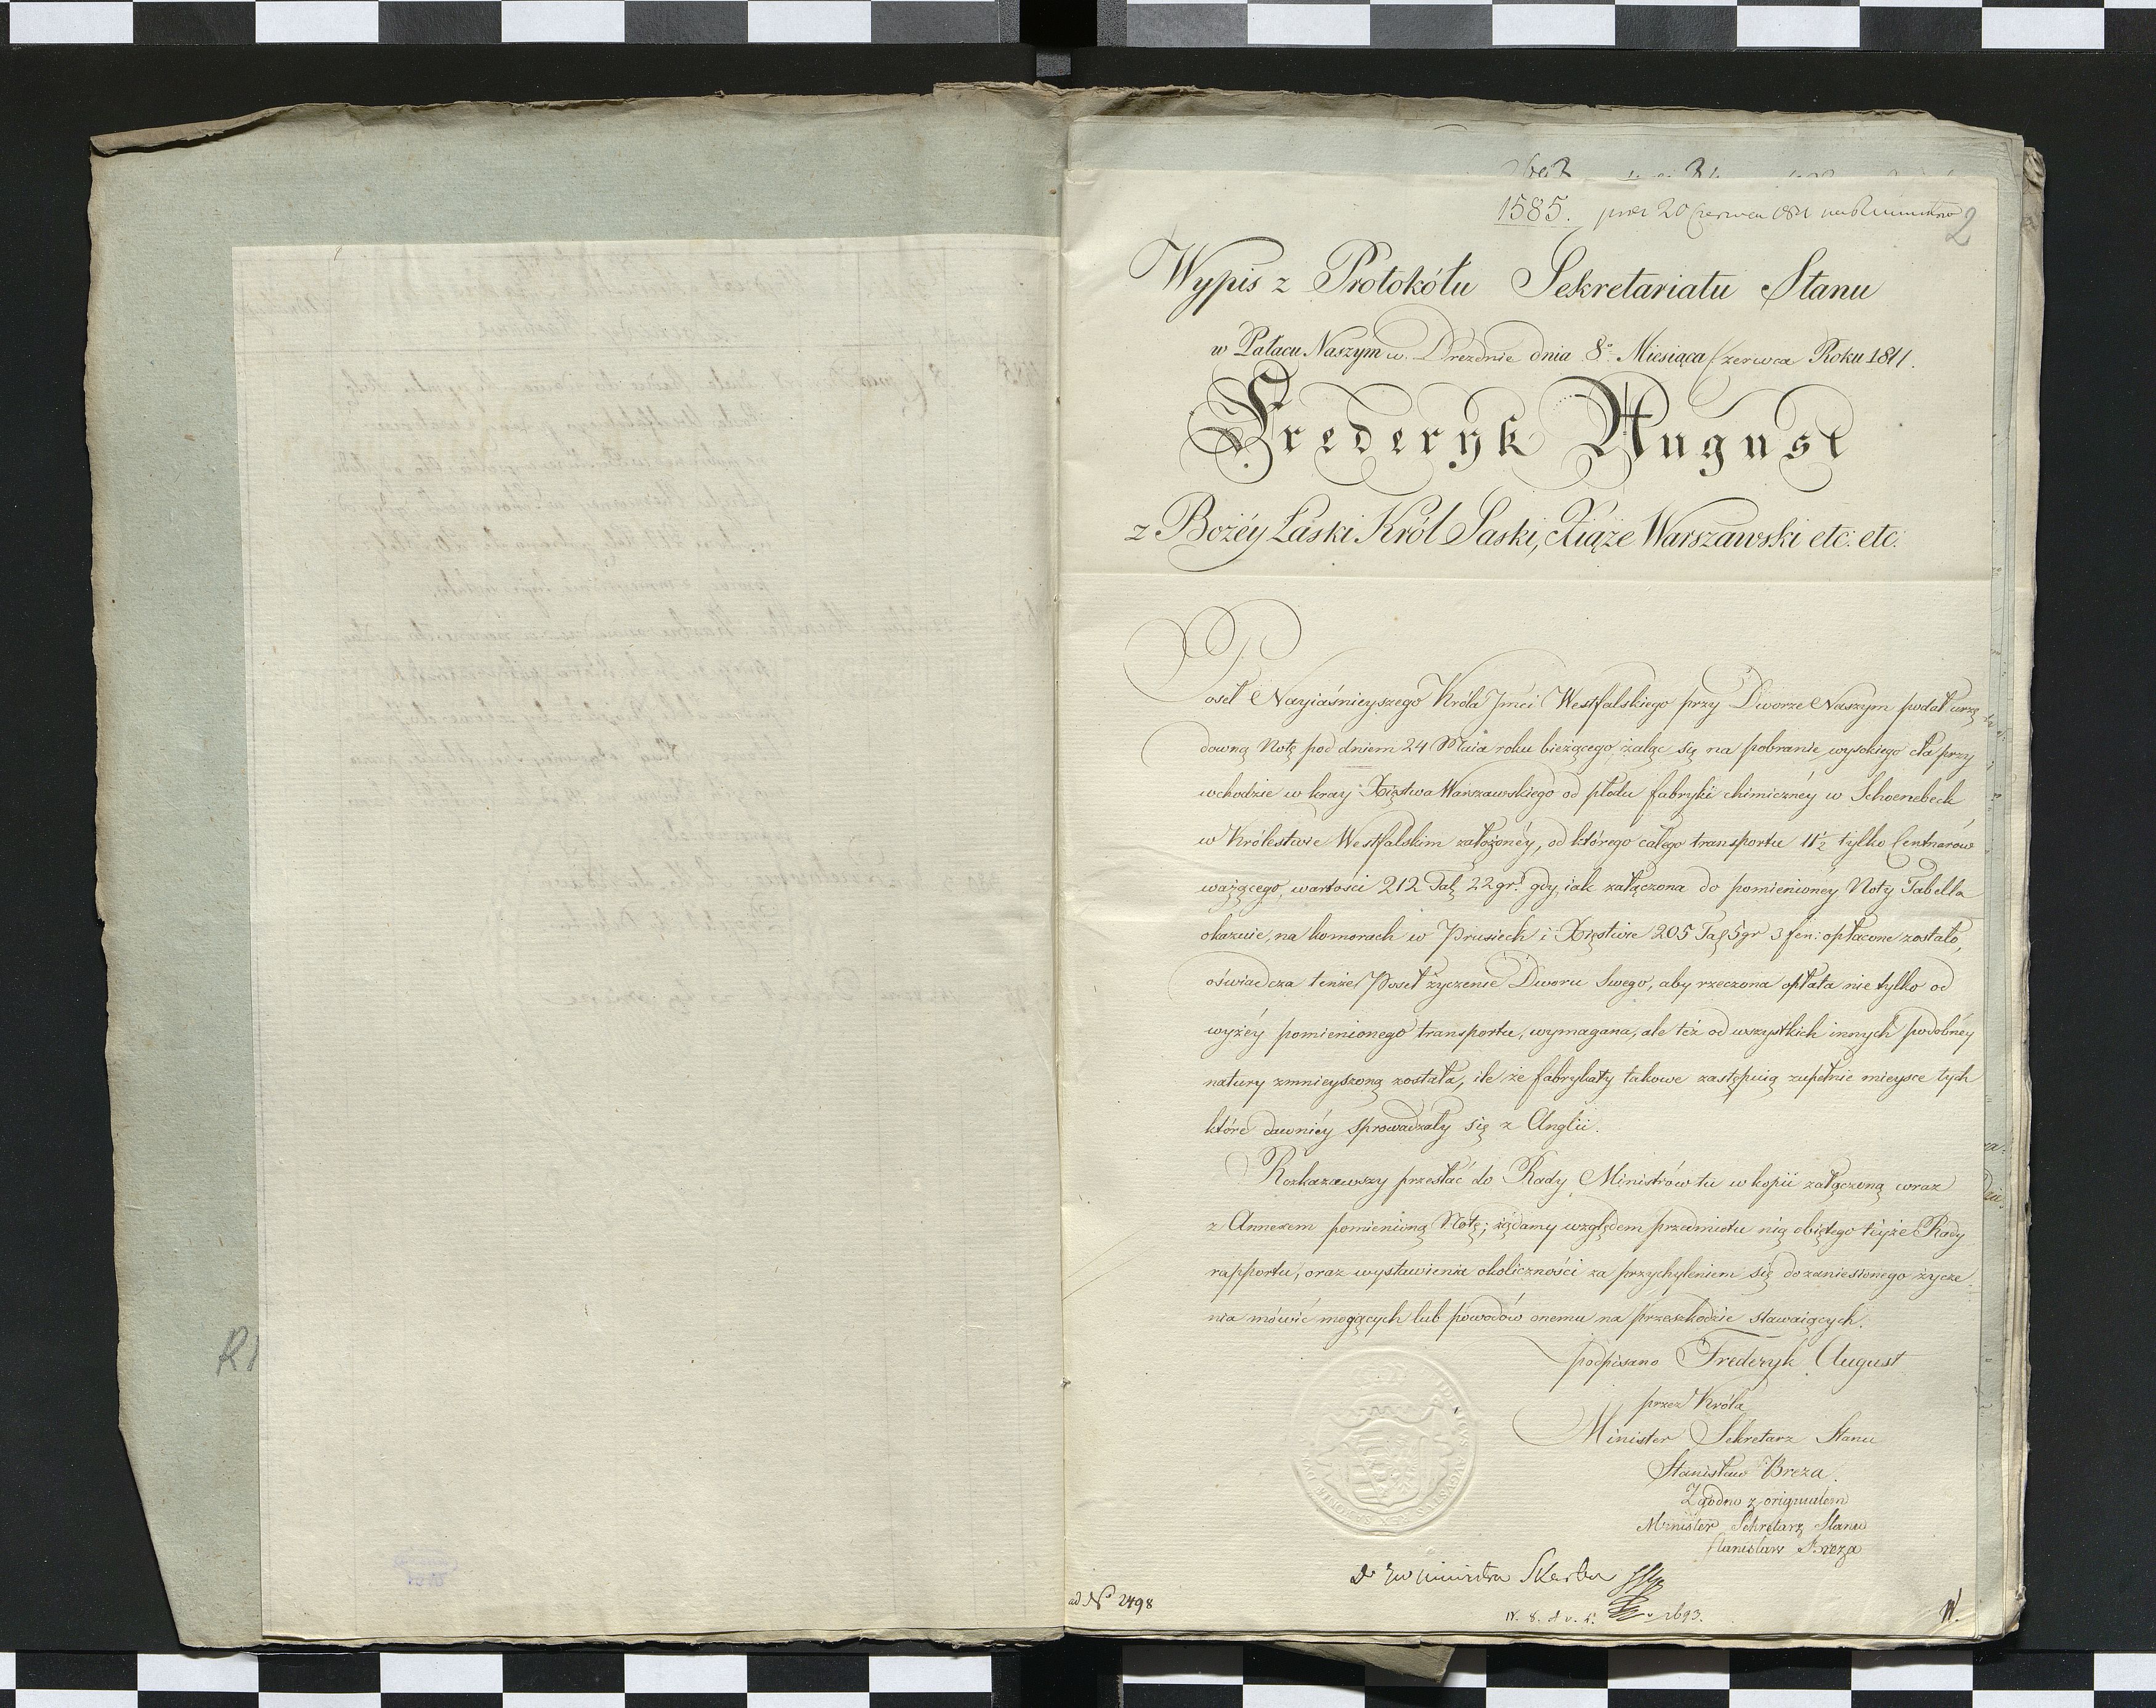 1585. prez 20 Czerwca 1811
2
Wypis z Protokółu Sekretariatu Stanu
w Pałacu Naszym w Dreznie dnia 8º Miesiąca Czerwca Roku 1811.
Frederyk August
z Bożéy Łaski Król Saski, Xiąże Warszawski etc: etc:
Poseł Nayiaśnieyszego Króla Jmci Westfalskiego przy Dworze Naszym podał urzę
downą Notę pod dniem 24 Maia roku bieżącego żaląc się na pobranie wysokiego cła przy
wchodzie w kray Xięstwa Warszawskiego od płodu fabryki chimicznéy w Schoenebeck
w Królestwie Westfalskim założonéy, od którego całego transportu 11½ tylko Centnarów
ważącego, wartości 212 Tal 22 gr. gdy, iak załączona do pomienionéy Noty Tabella
okazuie, na komorach w Prusiech i Xięstwie 205 Tal 5 gr 3 fen: opłacone zostało,
oświadcza tenże Poseł życzenie Dworu Swego, aby rzeczona opłata nie tylko od
wyżéy pomienionego transportu, wymagana, ale też od wszystkich innych podobnéy
natury zmnieyszoną została, ile że fabrykaty takowe zastępuią zupełnie mieysce tych
które dawniéy sprowadzały się z Anglii.
Rozkazawszy przesłać do Rady Ministrów tu w kopii załączoną wraz
z Annexem pomienioną Notę; żądamy względem przedmiotu nią obiętego téyże Rady
rapportu, oraz wystawienia okoliczności za przychyleniem się do zaniesionego życze
nia mówić mogących lub powodów onemu na przeszkodzie stawaiących.
podpisano Frederyk August
przez Króla
Minister Sekretarz Stanu
Stanisław Breza.
Zgodno z originałem
Minister Sekretarz Stanu
Stanisław Breza
Do JW Ministra Skarbu
ad Nº 2498
1693.
R1